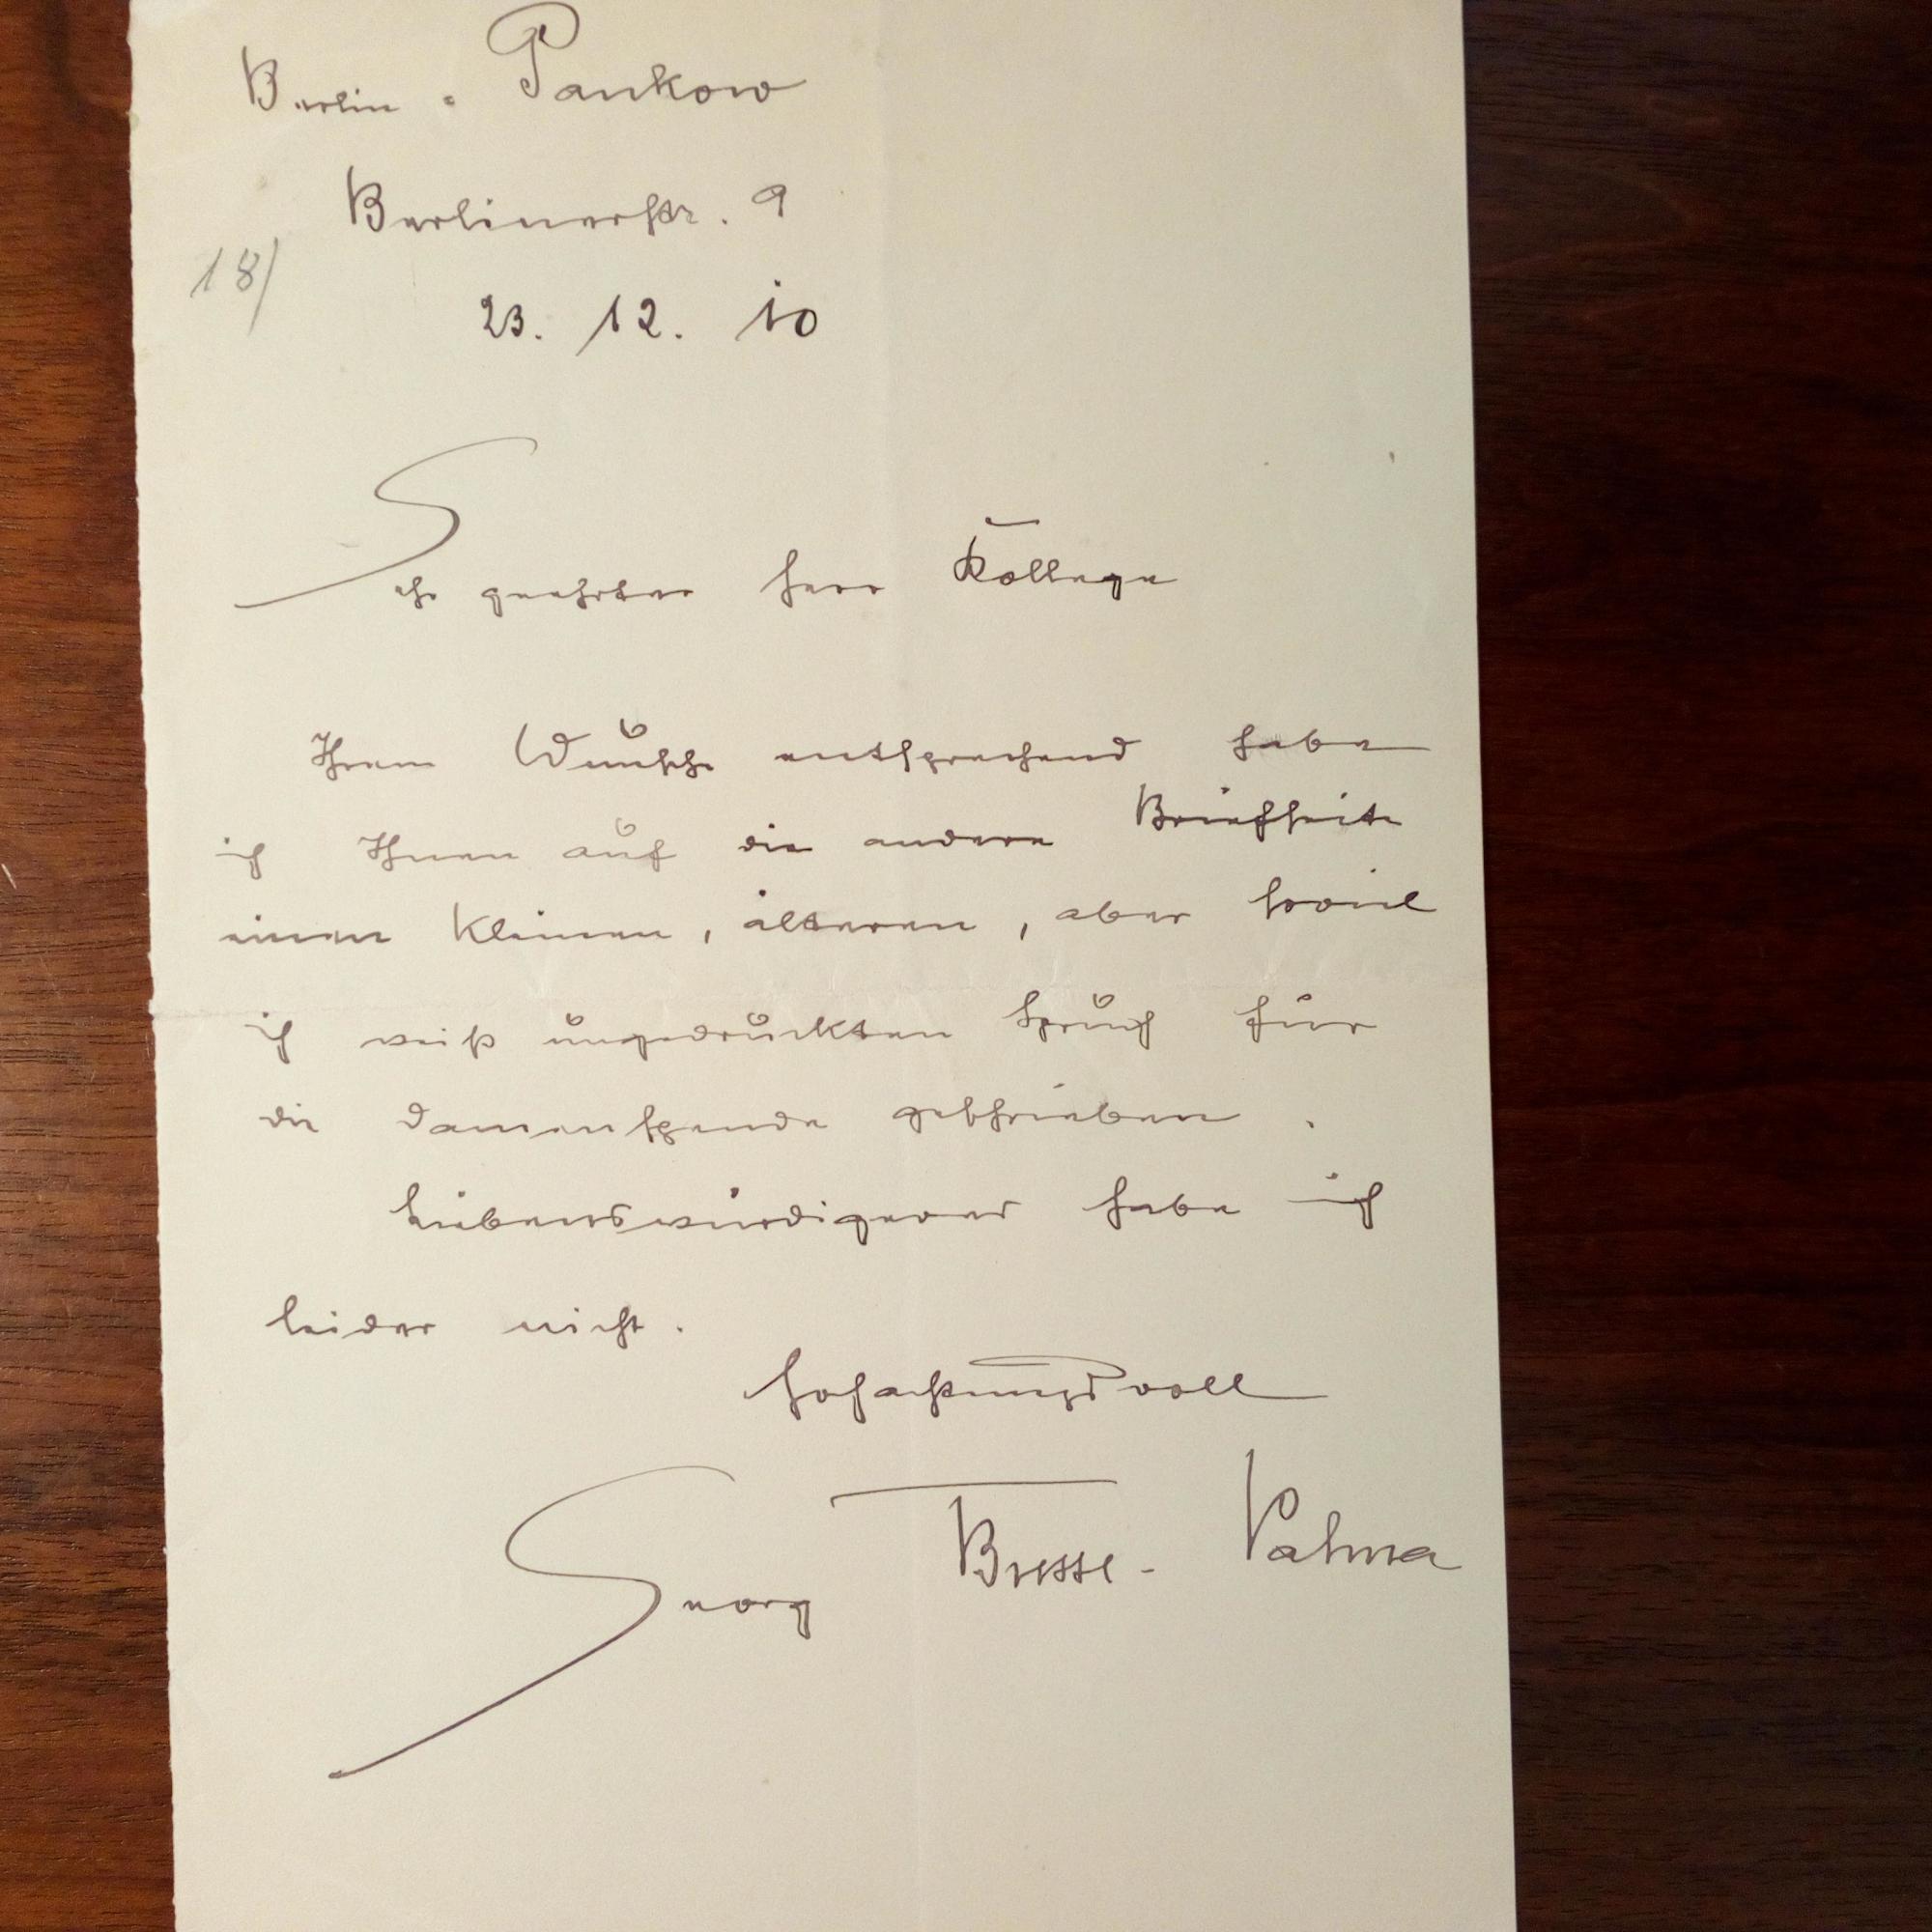 Berlin-Pankow
Berlinerstr. 9
18)
23. 12. 10
Sehr geehrter Herr Kollege
Ihrem Wunsche entsprechend habe
ich Ihnen auf die andere Briefseite
einen kleinen, älteren, aber soviel
ich weiß ungedruckten Spruch für
die Damenspende geschrieben.
Liebenswürdigeres habe ich
leider nicht.
Hochachtungsvoll
Georg Busse-Palma